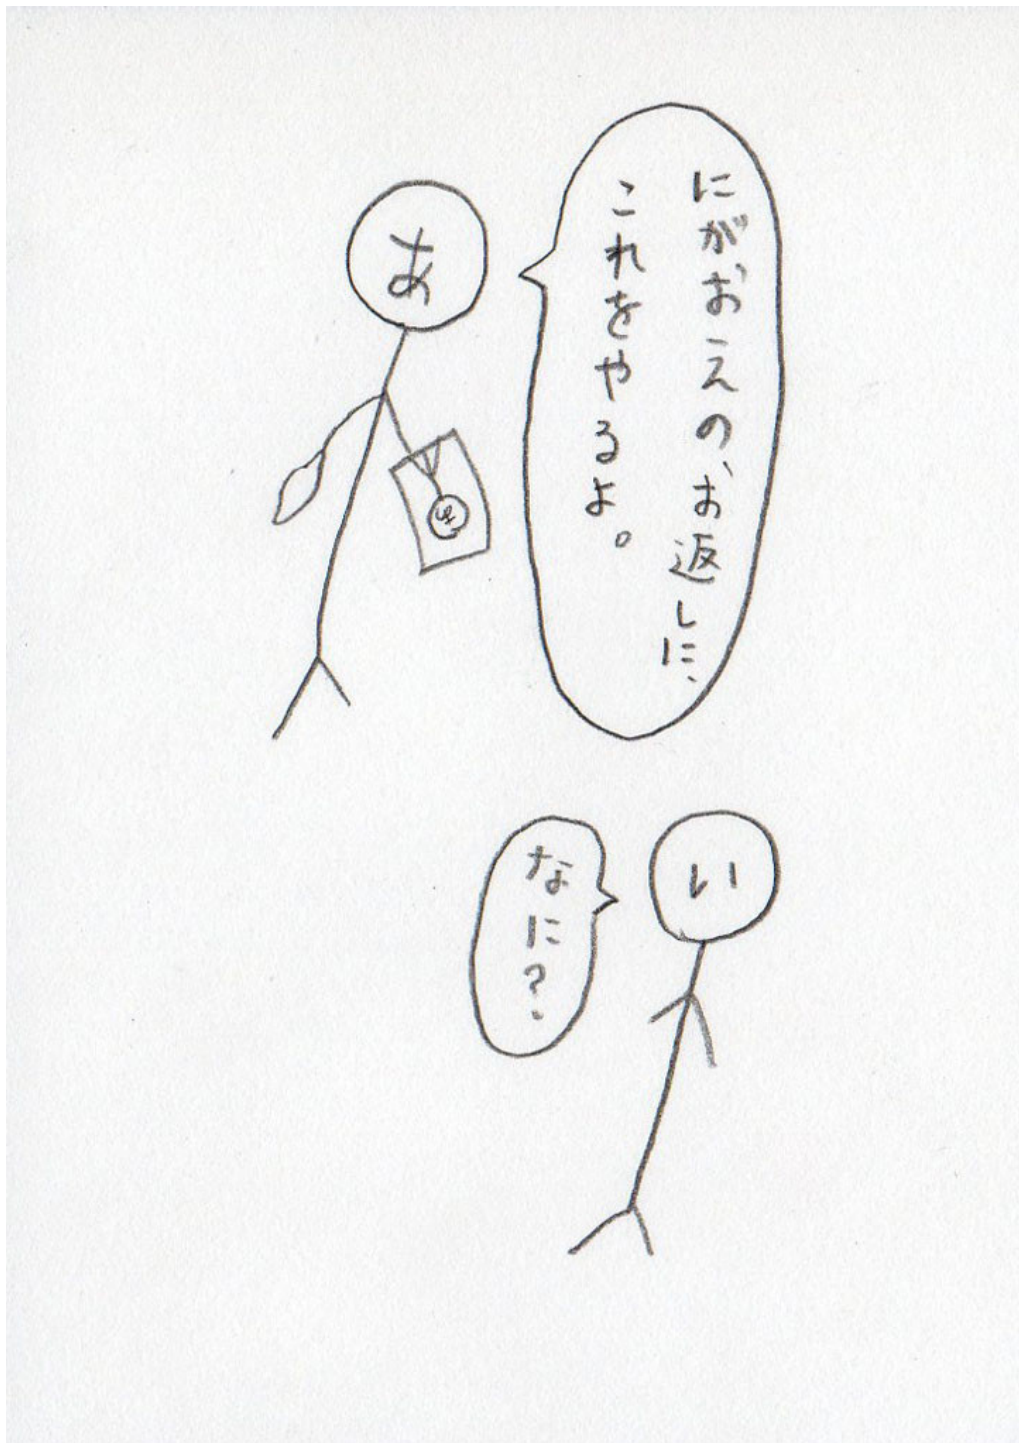 にがおえのお返しに、
これをやるよ。
あ
なに?
い